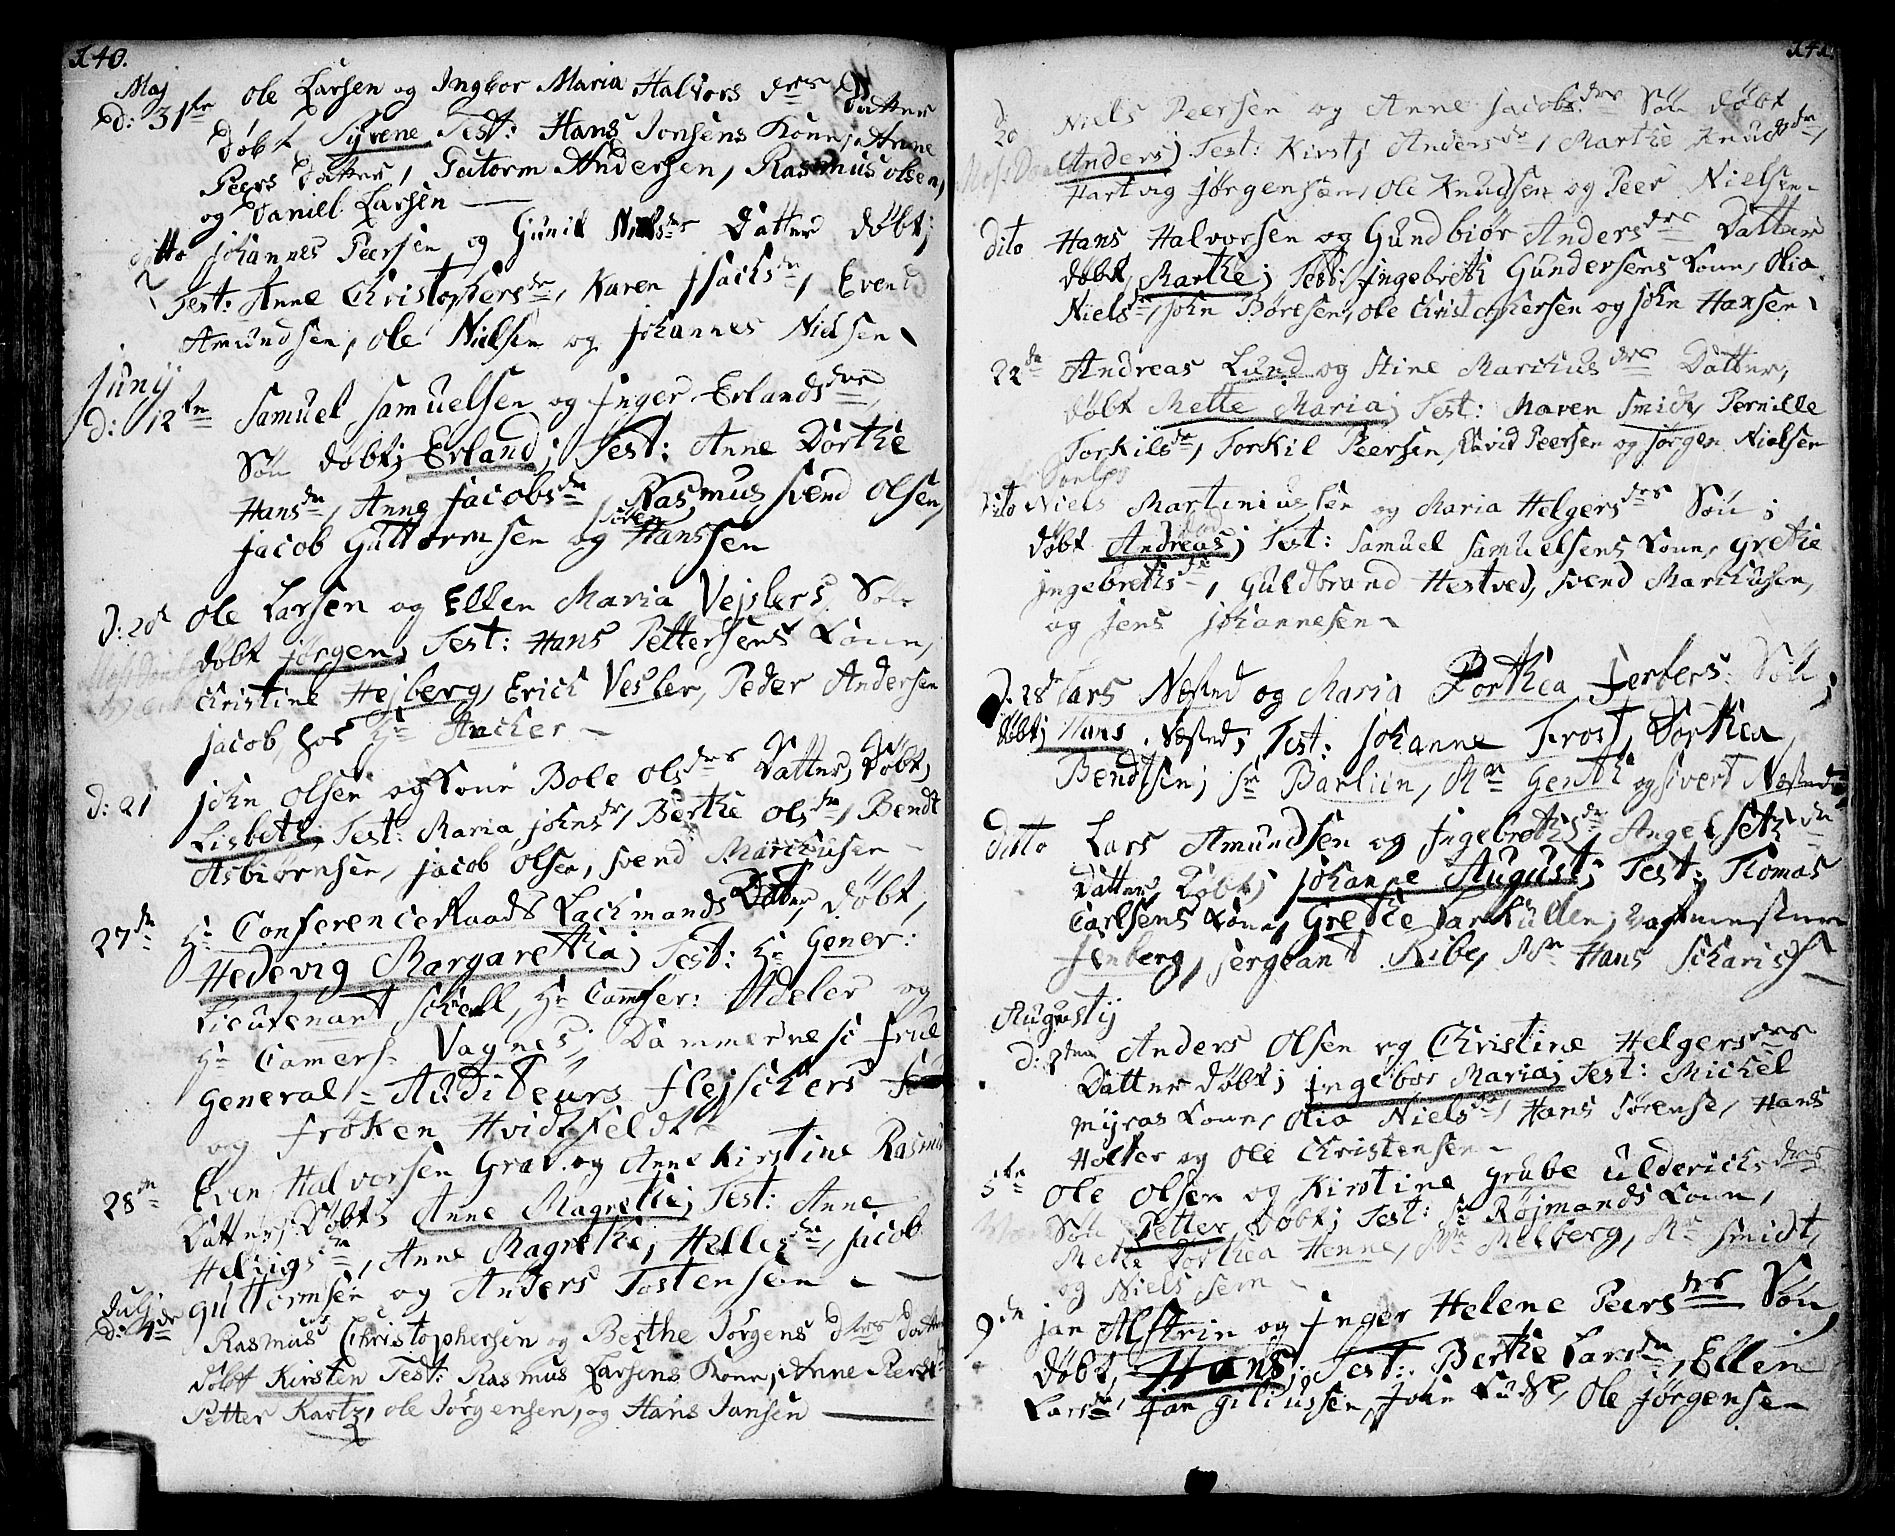 140.
Maj
d: 31te Ole Larsen og Ingbor Maria Halvors dtrs datter
døbt Syrene Test: Hans Jonsens Kone, Anne
Peers datter, Gutorm Andersen, Rasmus olsen,
og Daniel Larsen
ditto Johannes Peersen og Gunil Niels dr Datter døbt;
Test: Anne Christophersdr, Karen Jsachsdr, Evend
Amundsen, ole Nielsen og Johannes Nielsen
Juny
d: 12tn Samuel Samuelsen og Jnger Erlandsdrs
Søn døbt; Erland; Test: Anne Dorthe
Hansdr, Anne Jacobsdr, Rasmus, Svend Olsen,
Jacob Guttormsen og Søren Hanssen
d: 20d Ole Larsen og Ellen Maria Vejslers Søn
døbt Jørgen; Test: Hans Pettersens Konne,
Christine Hejberg, Erich Vesler, Peder Andersen
Jacob, hos Hr Ancher
d: 21 John Olsen og Kone Bole Olsdrs Datter, Døbt,
Lisbeth, Test: Maria Johnsdr, Berthe Olsdr, Bendt
Asbiørnsen, Jacob Olsen, Svend Marchusen
27de Hr Conferenceraads Lachmands Datter, døbt,
Hedevig Margaretha; Test: Hr Gener:
Lieutenant Schell, Hr Camher: Adeler og
Hr Camers: Vagnes; Dammerne Sc Frue
General-Auditeurs Flejschers
og Frøken Hvidtfeldt
28de Even Halvorsen Grav. og Anne Kirstine Rasmus
Datter, Døbt; Anne Magrethe; Test: Anne
Hellugsdr, Anne Magrethe, Hellesdr, Jacob
Guttormsen og Anders Tostensen
Julj
d: 4de Rasmus Christophersen og Berthe Jörgens dtrs datter
døbt Kirsten Test: Rasmus Larsens Kone, Anne Peersd
Petter Kartz, ole Jörgensen, og Hans Jansen
141.
d 20 Niels Peersen og Anne Jacobsdrs Søn døbt
Anders; Test: Kirstj Andersdr, Marthe Knudsdr,
Hartvig Jørgensen, Ole Knudsen og Peer Nielsen
dito Hans Halvorsen og Gundbiør Andersdrs Datter
døbt, Marthe; Test: Jngebreth Gundersens Konne, Olia
Nielsdr, John Børesen, ole Christophersen og John Hansen
22de Andreas Lund og Stine Marchusdrs Datter,
døbt Mette Maria; Test: Maren Smidt, Pernille
Torkilsdr, Torkil Peersen, David Peersen og Jørgen Nielsen
dito Niels Martiniussen og Maria Helgersdrs Søn;
døbt Andreas; Test: Samuel Samuelsens Konne, Grethe
Jngebrethsdr, Guldbrand Hestved, Svend Marchusen,
og Jens Johannesen
d: 28d Lars Næsted og Maria Dorthea Ferbers Søn;
døbt; Hans Næsted; Test: Johanne Frost, Dorthea
Bendtsen; Sr Barlien, Mr Genth og Sivert Næsted
ditto Lars Amundsen og Jngebrethsdr Angelseth
Datter, Døbt; Johanne August; Test: Thomas
Carlsens Konne, Grethe Tarkullen, Vagtmester
Jenberg, Sergeant Ribe, Mr Hans Schariss
Augustij
d: 2den Anders Olsen og Christine Helgersdrs
Datter døbt; Jngebor Maria; Test: Michel
Myras Konne, Olia Nielsdr, Hans Sørense, Hans
Holter og Ole Christensen
5te Ole Olsen og Kirstine Grube Ulderichsdrs
Søn Petter Døbt; Test: Sr Røjmands Konne,
Mette Dorthea Henne, Mr Melberg, Mr Smidt,
og Niels Sem
9de Jan Alstrin og Jnger Helene Peersdrs Søn
døbt, Hans; Test: Berthe Larsdr, Ellen
Larsdr Jan Giliussen, John Ludse, Ole Jørgense